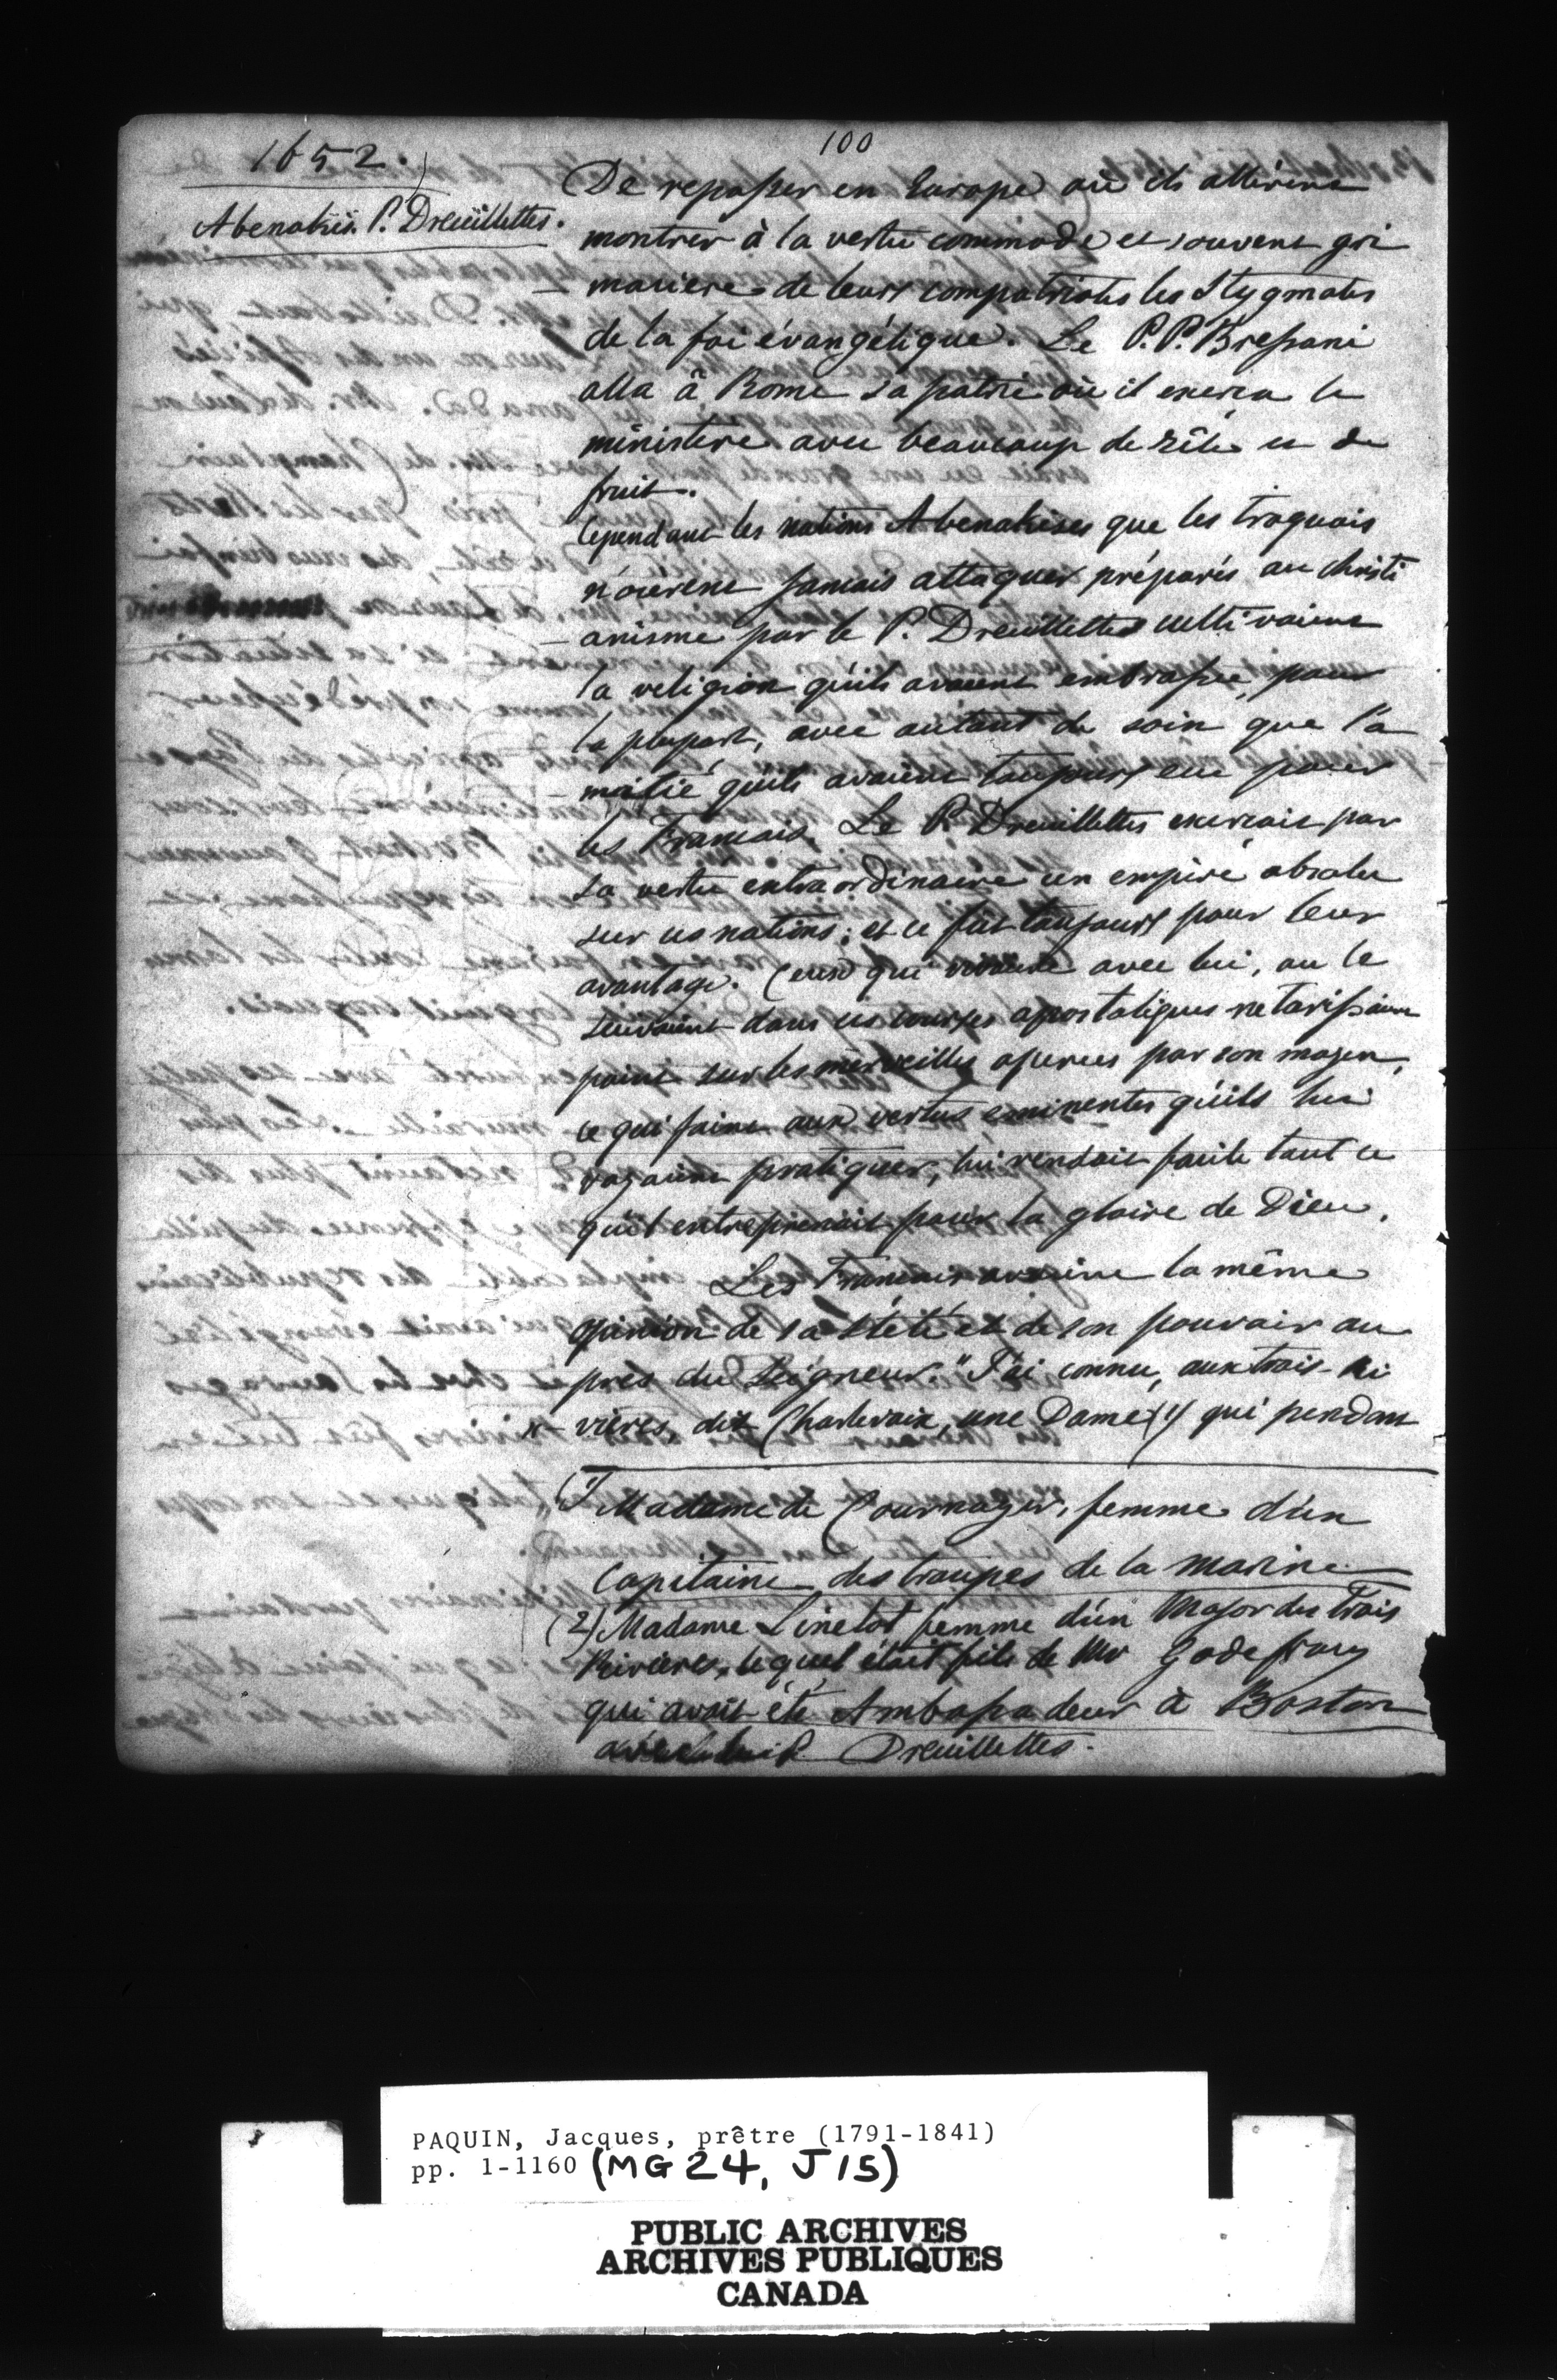 1652.
Abenakis. P. Dreüillettes.
100
De repasser en Europe où ils allèrent
montrer à la vertu commode et souvent gri
- maciere de leurs compatriotes les Stygmates
de la foi évangélique. Le P. P. Bressani
alla à Rome sa patrie où il exerca le
ministère avec beaucoup de zêle et de
fruit.
Cependant les nations Abenakises que les Iroquois
n'oserent jamais attaquer préparés au christi
- anisme par le P. Dreuillettes cultivaient
la religion qu'ils avaient embrassée, pour
la plupart, avec autant de soin que l'a
- mitié qu'ils avaient toujours eue pour
les Francais. Le P. Dreuillettes exercait par
sa vertu extraordinaire un empire absolu
sur ces nations; et ce fut toujours pour leur
avantage. Ceux qui vivaient avec lui, ou le
suivaient dans ses courses apostoliques ne tarissaient
point sur les merveilles operees par son moyen,
ce qui joint aux vertus eminentes qu'ils lui
voyaient pratiquer, lui rendait facile tout ce
qu'il entreprenait pour la gloire de Dieu.
Les Francais avaient la même
opinion de sa Stété et de son pouvoir au
près du Seigneur. "J'ai connu, aux trois-Ri
- vières, dit Charlevoix, une Dame (1) qui pendant
(1 Madame de Cournoyer, femme d'un
Capitaine des troupes de la marine
(2) Madame Linctot femme d'un Major des Trois
Rivieres, lequel était fils de Mr Godefroy
qui avait été Ambassadeur à Boston
avec le P. Dreuillettes.
PAQUIN, Jacques, prêtre (1791-1841)
pp. 1-1160 (MG 24, J 15)
PUBLIC ARCHIVES
ARCHIVES PUBLIQUES
CANADA